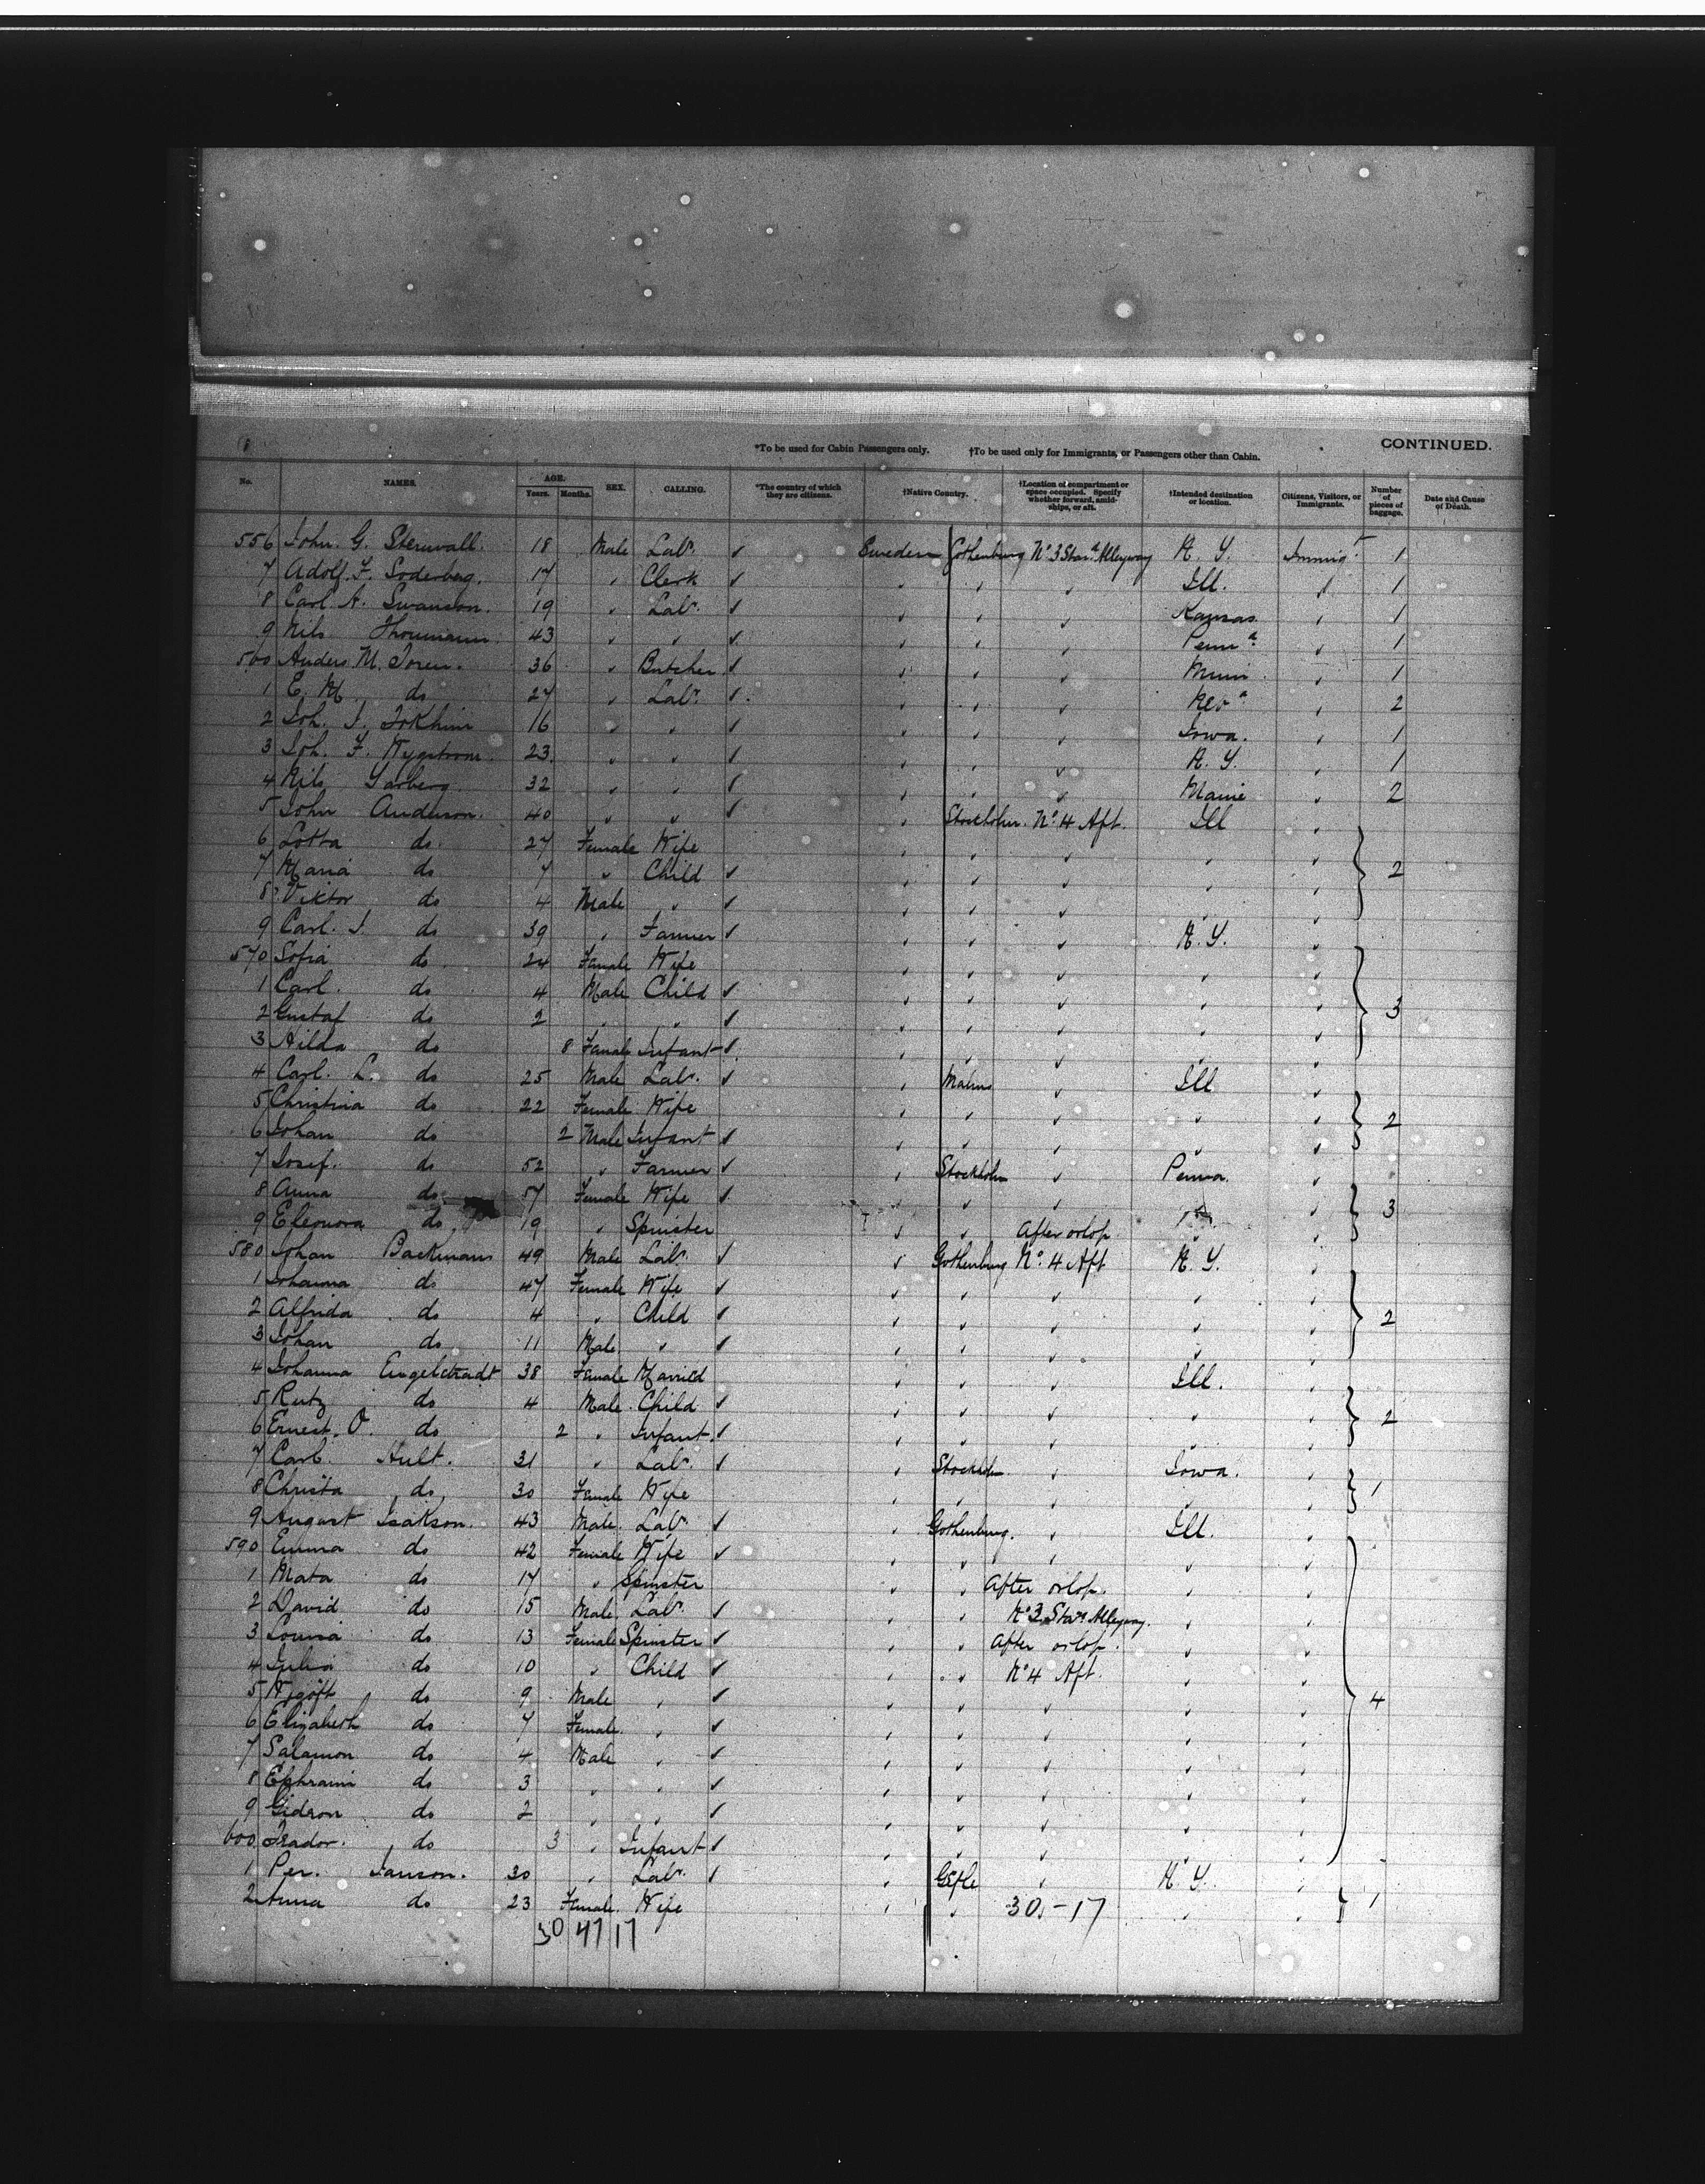 CONTINUED.
*To be used for Cabin Passengers only. †To be used only for Immigrants, or Passengers other than Cabin.
No. NAMES. AGE. Years. Months. SEX. CALLING. *The country of which they are citizens. †Native Country. †Location of compartment or space occupied. Specify whether forward, amidships, or aft. †Intended destination or location. Citizens, Visitors, or Immigrants. Number of pieces of baggage. Date and Cause of Death.
556 John G. 18 Male Labr. ✓ Sweden Gothenburg No 3 Star. Alleyway N. Y. Immigt 1
7 Adolf. F. Soderberg. 17 " Clerk ✓ " " " Ill. " 1
8 Carl A. Swanson. 19 " Labr. ✓ " " " Kansas " 1
9 Nils 43 " " ✓ " " " Penna " 1
560 Anders M. 36 " Butcher ✓ " " " Minn " 1
1 E. M. do 27 " Labr. ✓ " " " " 2
2 Joh. 16 " " ✓ " " " Iowa. " 1
3 Joh. F. 23 " " ✓ " " " N. Y. " 1
4 Nils 32 " " ✓ " " " Maine " 2
5 John Anderson. 40 " " ✓ " Stockholm. No 4 Aft. Ill "
6 Lotta do. 27 Female Wife " " " " "
7 Maria do 7 " Child ✓ " " " " " 2
8 Viktor do 4 Male " ✓ " " " " "
9 Carl. J. do 39 " Farmer ✓ " " " N. Y. "
570 Sofia do 24 Female Wife " " " " "
1 Carl. do 4 Male Child ✓ " " " " "
2 Gustaf do 2 " " ✓ " " " " " 3
3 Hilda do 8 Female Infant ✓ " " " " "
4 Carl. L. do 25 Male Labr. ✓ " Malmo " Ill "
5 Christina do 22 Female Wife " " " " "
6 Johan do 2 Male Infant ✓ " " " " " 2
7 Josef. do 52 " Farmer ✓ " Stockholm " Penna. "
8 Anna do 57 Female Wife ✓ " " " " " 3
9 Eleonora do 19 " Spinster " " After orlop. " "
580 Johan Backmans 49 Male Labr. ✓ " Gothenburg No 4 Aft N. Y. "
1 Johanna do 47 Female Wife ✓ " " " " "
2 Alfrida do 4 " Child ✓ " " " " " 2
3 Johan do 11 Male " ✓ " " " " "
4 Johanna 38 Female Married " " " Ill. "
5 do 4 Male Child ✓ " " " " " 2
6 Ernest. O. do 2 " Infant. ✓ " " " " "
7 Carl. Hult. 31 " Labr. ✓ " Stockholm " Iowa. "
8 Christa do 30 Female Wife " " " " " 1
9 August Isakson. 43 Male. Labr. ✓ " Gothenburg. " Ill. "
590 Emma do 42 Female Wife ✓ " " " " "
1 Mata do 17 " Spinster " " After orlop. " "
2 David do 15 Male. Labr. ✓ " " No 3 Star. Alleyway. " "
3 Lovisa do 13 Female Spinster ✓ " " After orlop. " "
4 Julia do 10 " Child ✓ " " No 4 Aft. " "
5 do 9 Male " ✓ " " " " " 4
6 Elizabeth do 7 Female. " ✓ " " " " "
7 Salamon do 4 Male " ✓ " " " " "
8 Ephraim do 3 " " ✓ " " " " "
9 Gideon do 2 " " ✓ " " " " "
600 do 3 " Infant ✓ " " " " "
1 Per. Janson. 30 " Labr. ✓ " Gefle " N. Y. "
2 Anna do 23 Female. Wife " " 30.-17 " " 1
30 47 17